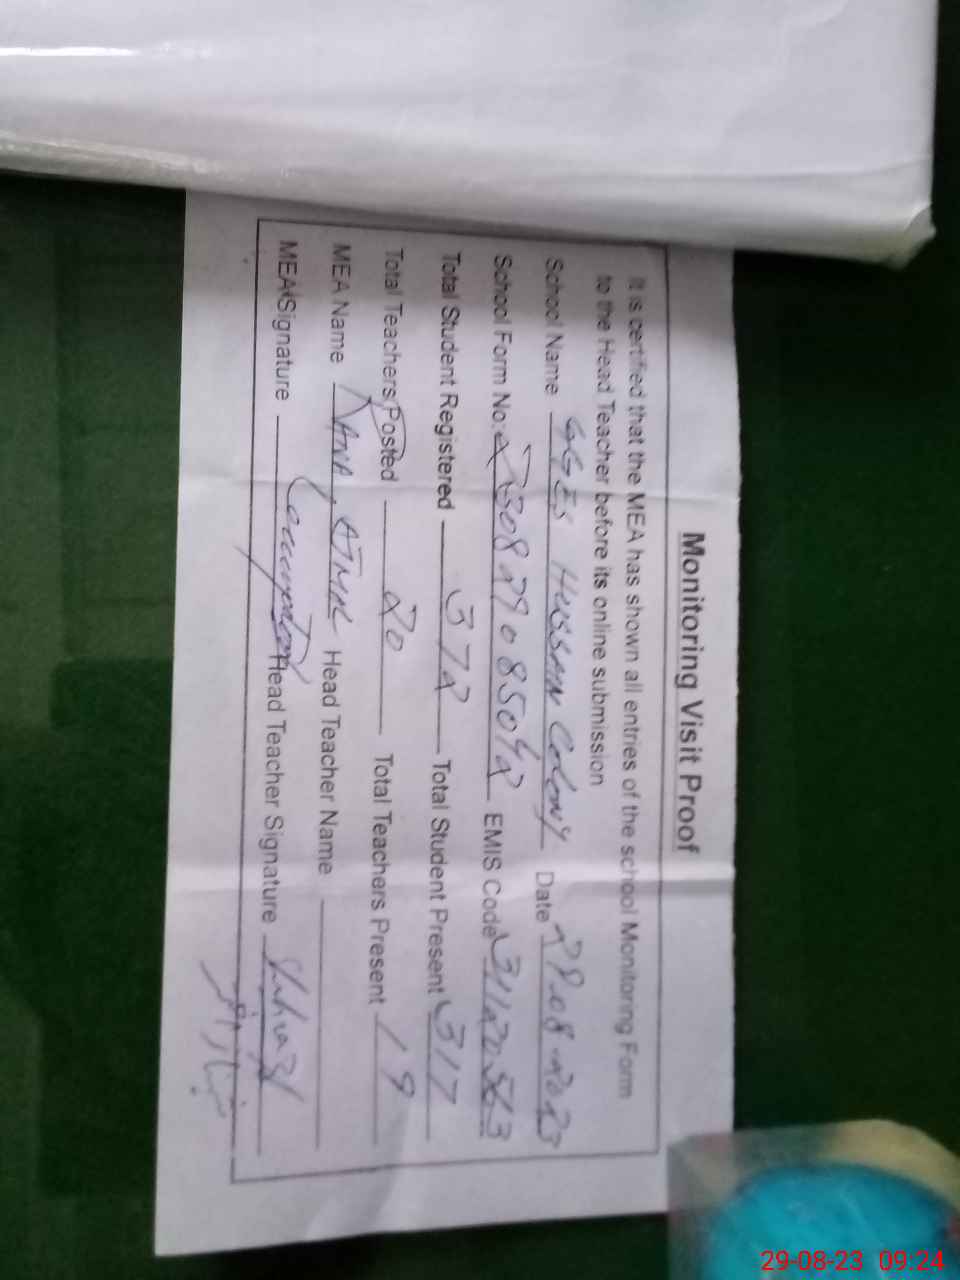 Monitoring Visit Proof
It is certified that the MEA has shown all entries of the school Monitoring Form
to the Head Teacher before its online submission
School Name GGES HUSSAIN COLONY Date 29.08.2023
School Form No: 230829085042 EMIS Code 31120563
Total Student Registered 372 Total Student Present 317
Total Teachers Posted 20 Total Teachers Present 19
MEA Name RANA Head Teacher Name
MEA Signature Head Teacher Signature
29-08-23 09:24